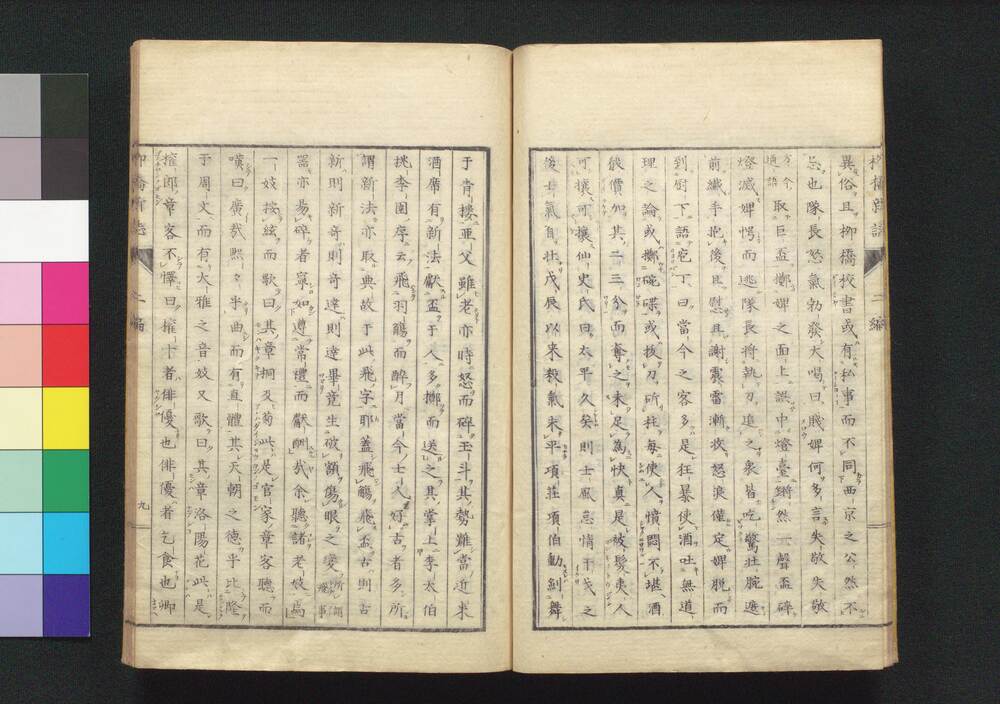 柳橋新誌 二編
異俗且柳橋校書或有私事而不同西京之公然不
忌也隊長怒氣勃發大喝曰賤婢何多言失敬失敬
方今通語取巨盃擲婢之面上誤中燈臺鏘然一聲盃碎
燈滅婢愕而逃隊長將執刀追之衆皆吃驚壯腕遮
前纖手抱後且慰且謝震雷漸收怒浪僅定婢脫而
到厨下語庖丁曰當今之客多是狂暴使酒吐無道
理之論或擲碗碟或拔刀斫柱每使人憤悶不堪酒
殽價加其二三分而奪之未足為快真是被髮夷人
可攘可攘仙史氏曰太平久矣則士風怠惰干戈之
後士氣自壯戊辰以来殺氣未平項莊項伯動劍舞
于青樓亞父雖老亦時怒而碎玉斗其勢難當近来
酒席有新法獻盃于人多擲而送之其掌上李太伯
桃李園序云飛羽觴而醉月當今士人好古者多所
謂新法亦取典故于此飛字耶蓋飛觴飛盃古則古
新則新奇則奇達則達畢竟生破額傷眼之変所謂飛事
器亦易碎者寧如遵常禮而獻酬哉余聽諸老妓焉
一妓按絃而歌曰其章桐及菊此是官家章客聽而
嘆曰廣哉熙々乎曲而有直體其天朝之徳乎比隆
于周文而有大雅之音妓又歌曰其章洛陽花此是
擅郎章客不懌曰擅十者俳優也俳優者乞食也卿
柳橋新誌 二編 九